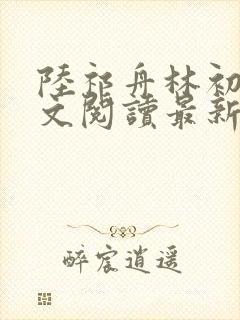 陸祁舟林初
文閱讀最新
醉宸逍遥